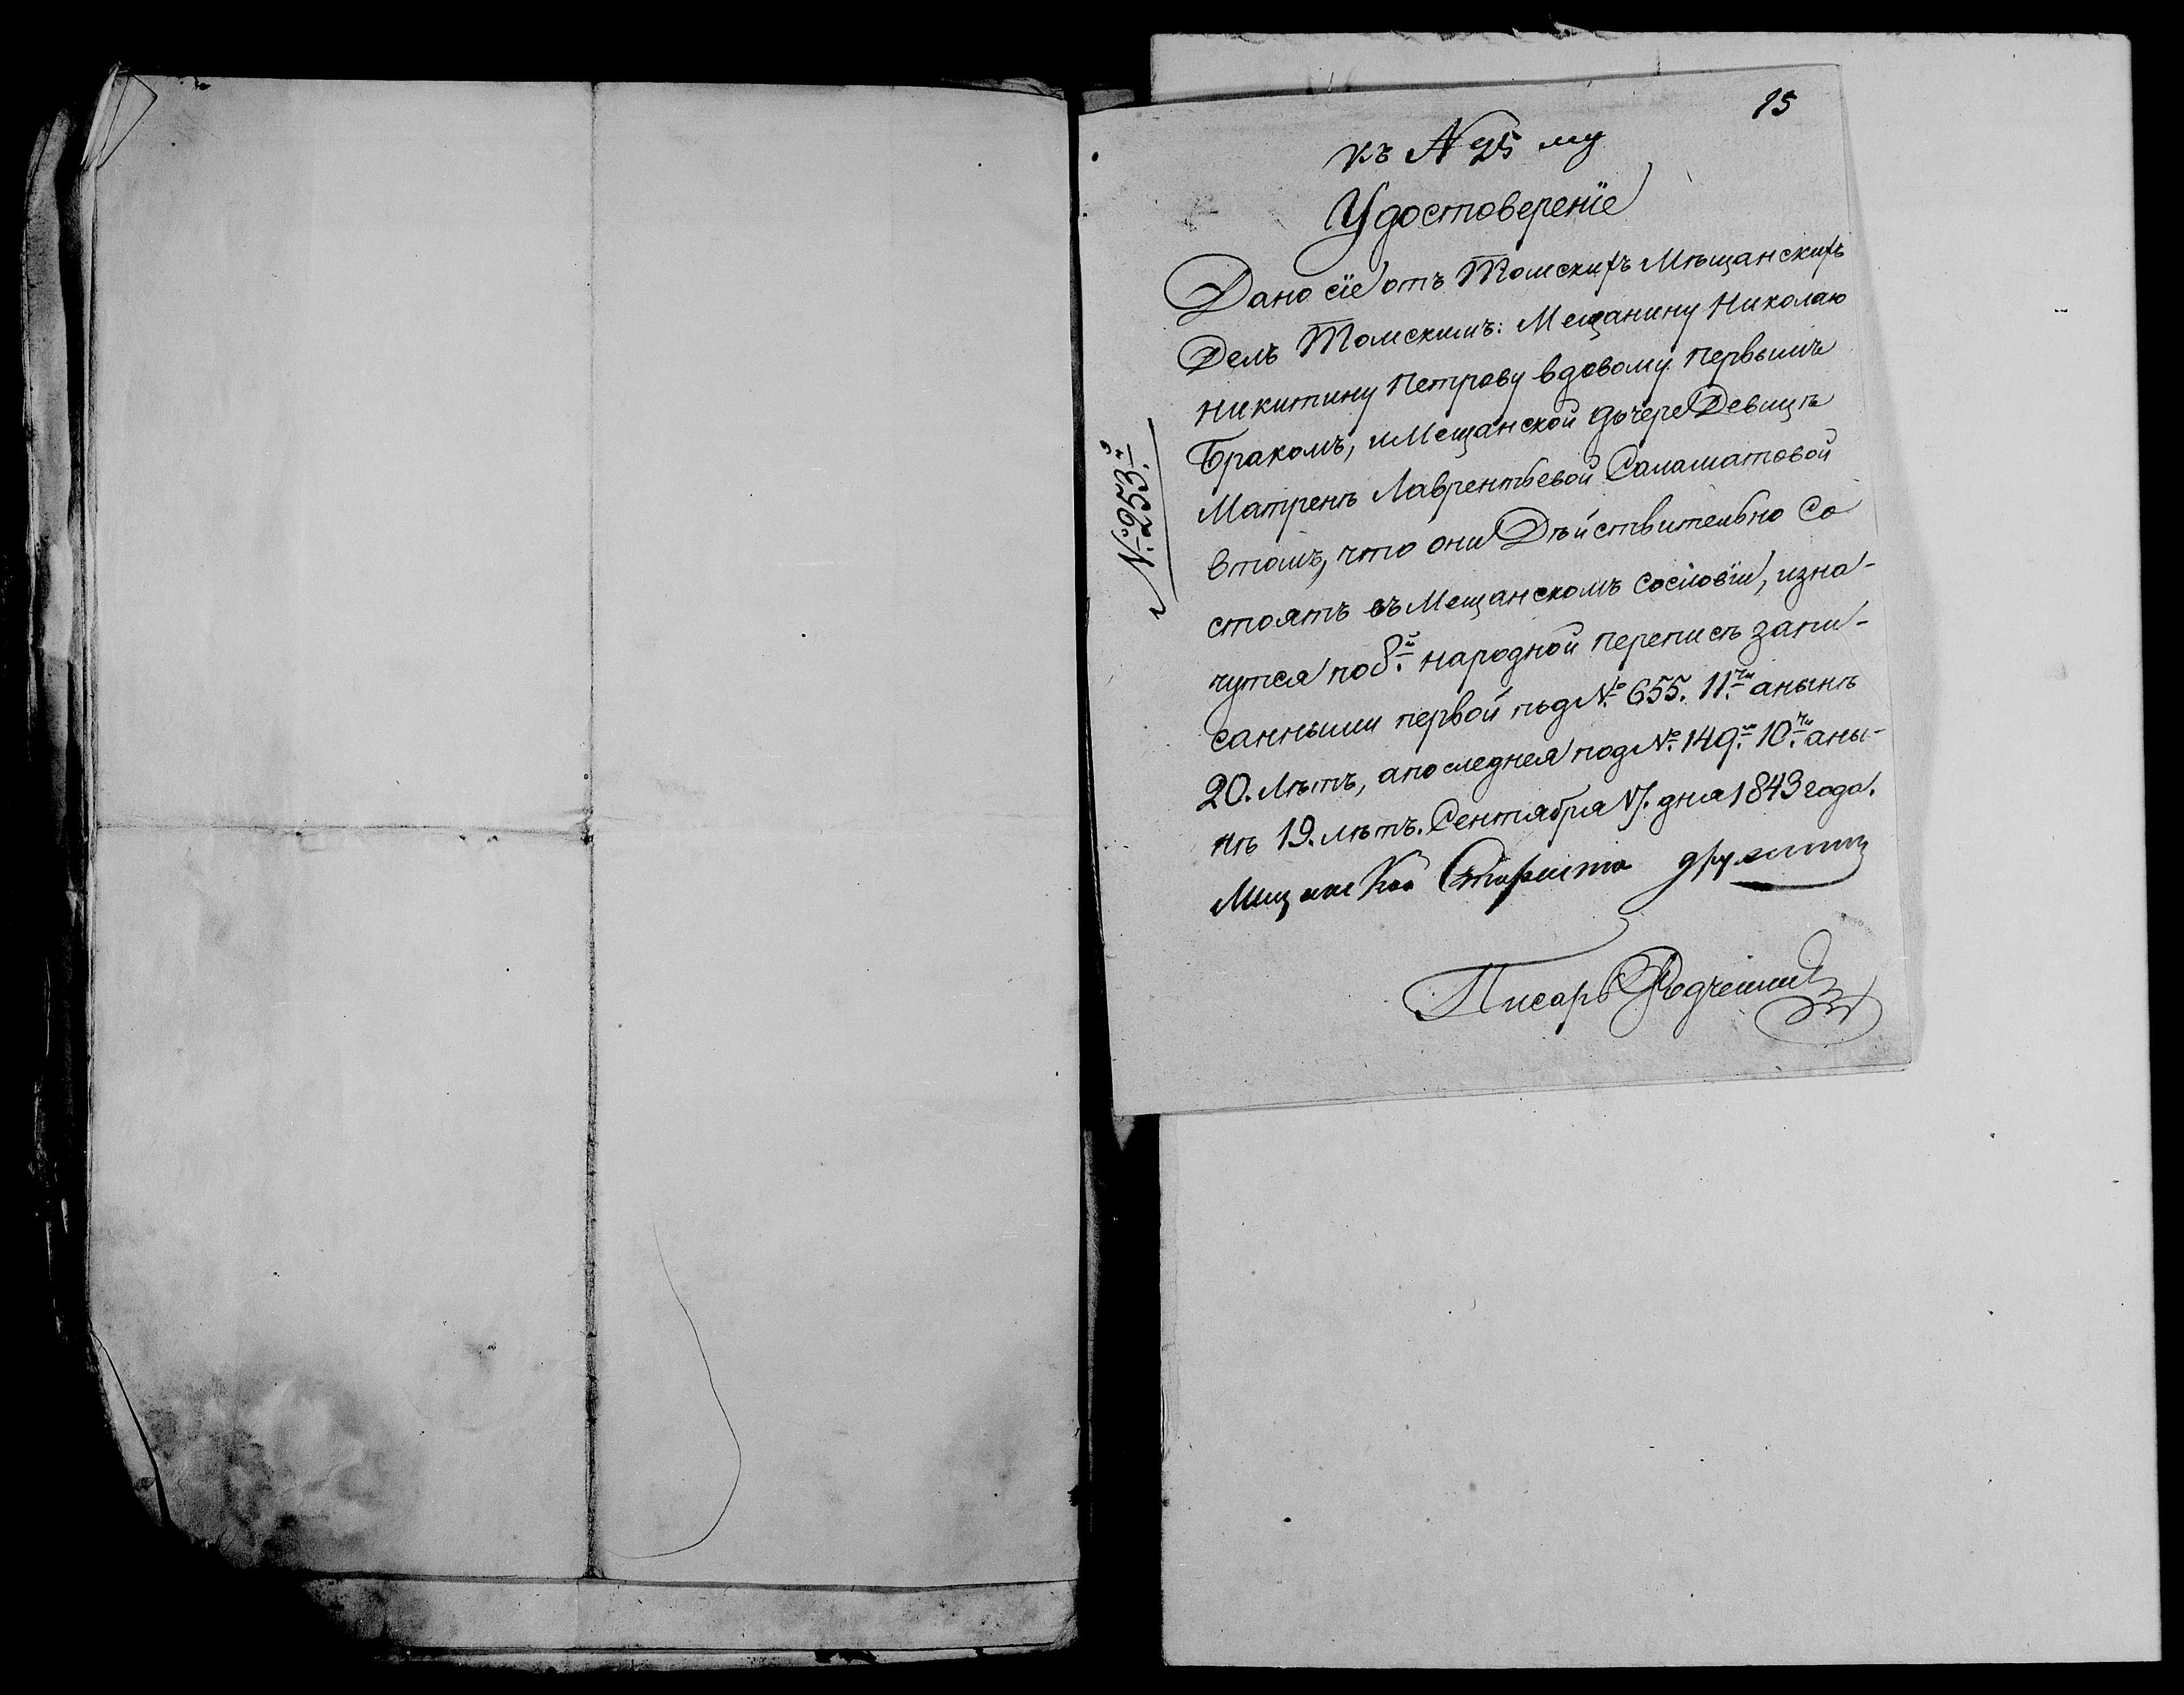 15
къ N 25 му
Удостоверенïе
Дано сïе отъ Томскихъ Мѣщанскихъ
Делъ Томскимъ: Мещанину Николаю
Никитину Петрову вдовому первымъ
Бракомъ, иМещанской дочере Девицѣ
Матренѣ Лаврентьевой Саламатовой
втомъ, что они Дѣйствительно Со
стоятъ въ Мещанскомъ сословïи, изна-
чутся по 8й народной переписѣ запи-
санными первой подъ № 655. 11ти анынѣ
20. лѣтъ, апоследнея под № 149м 10ти аны-
нѣ 19. лѣтъ. Сентября дня 1843 года.
Староста
Писарь